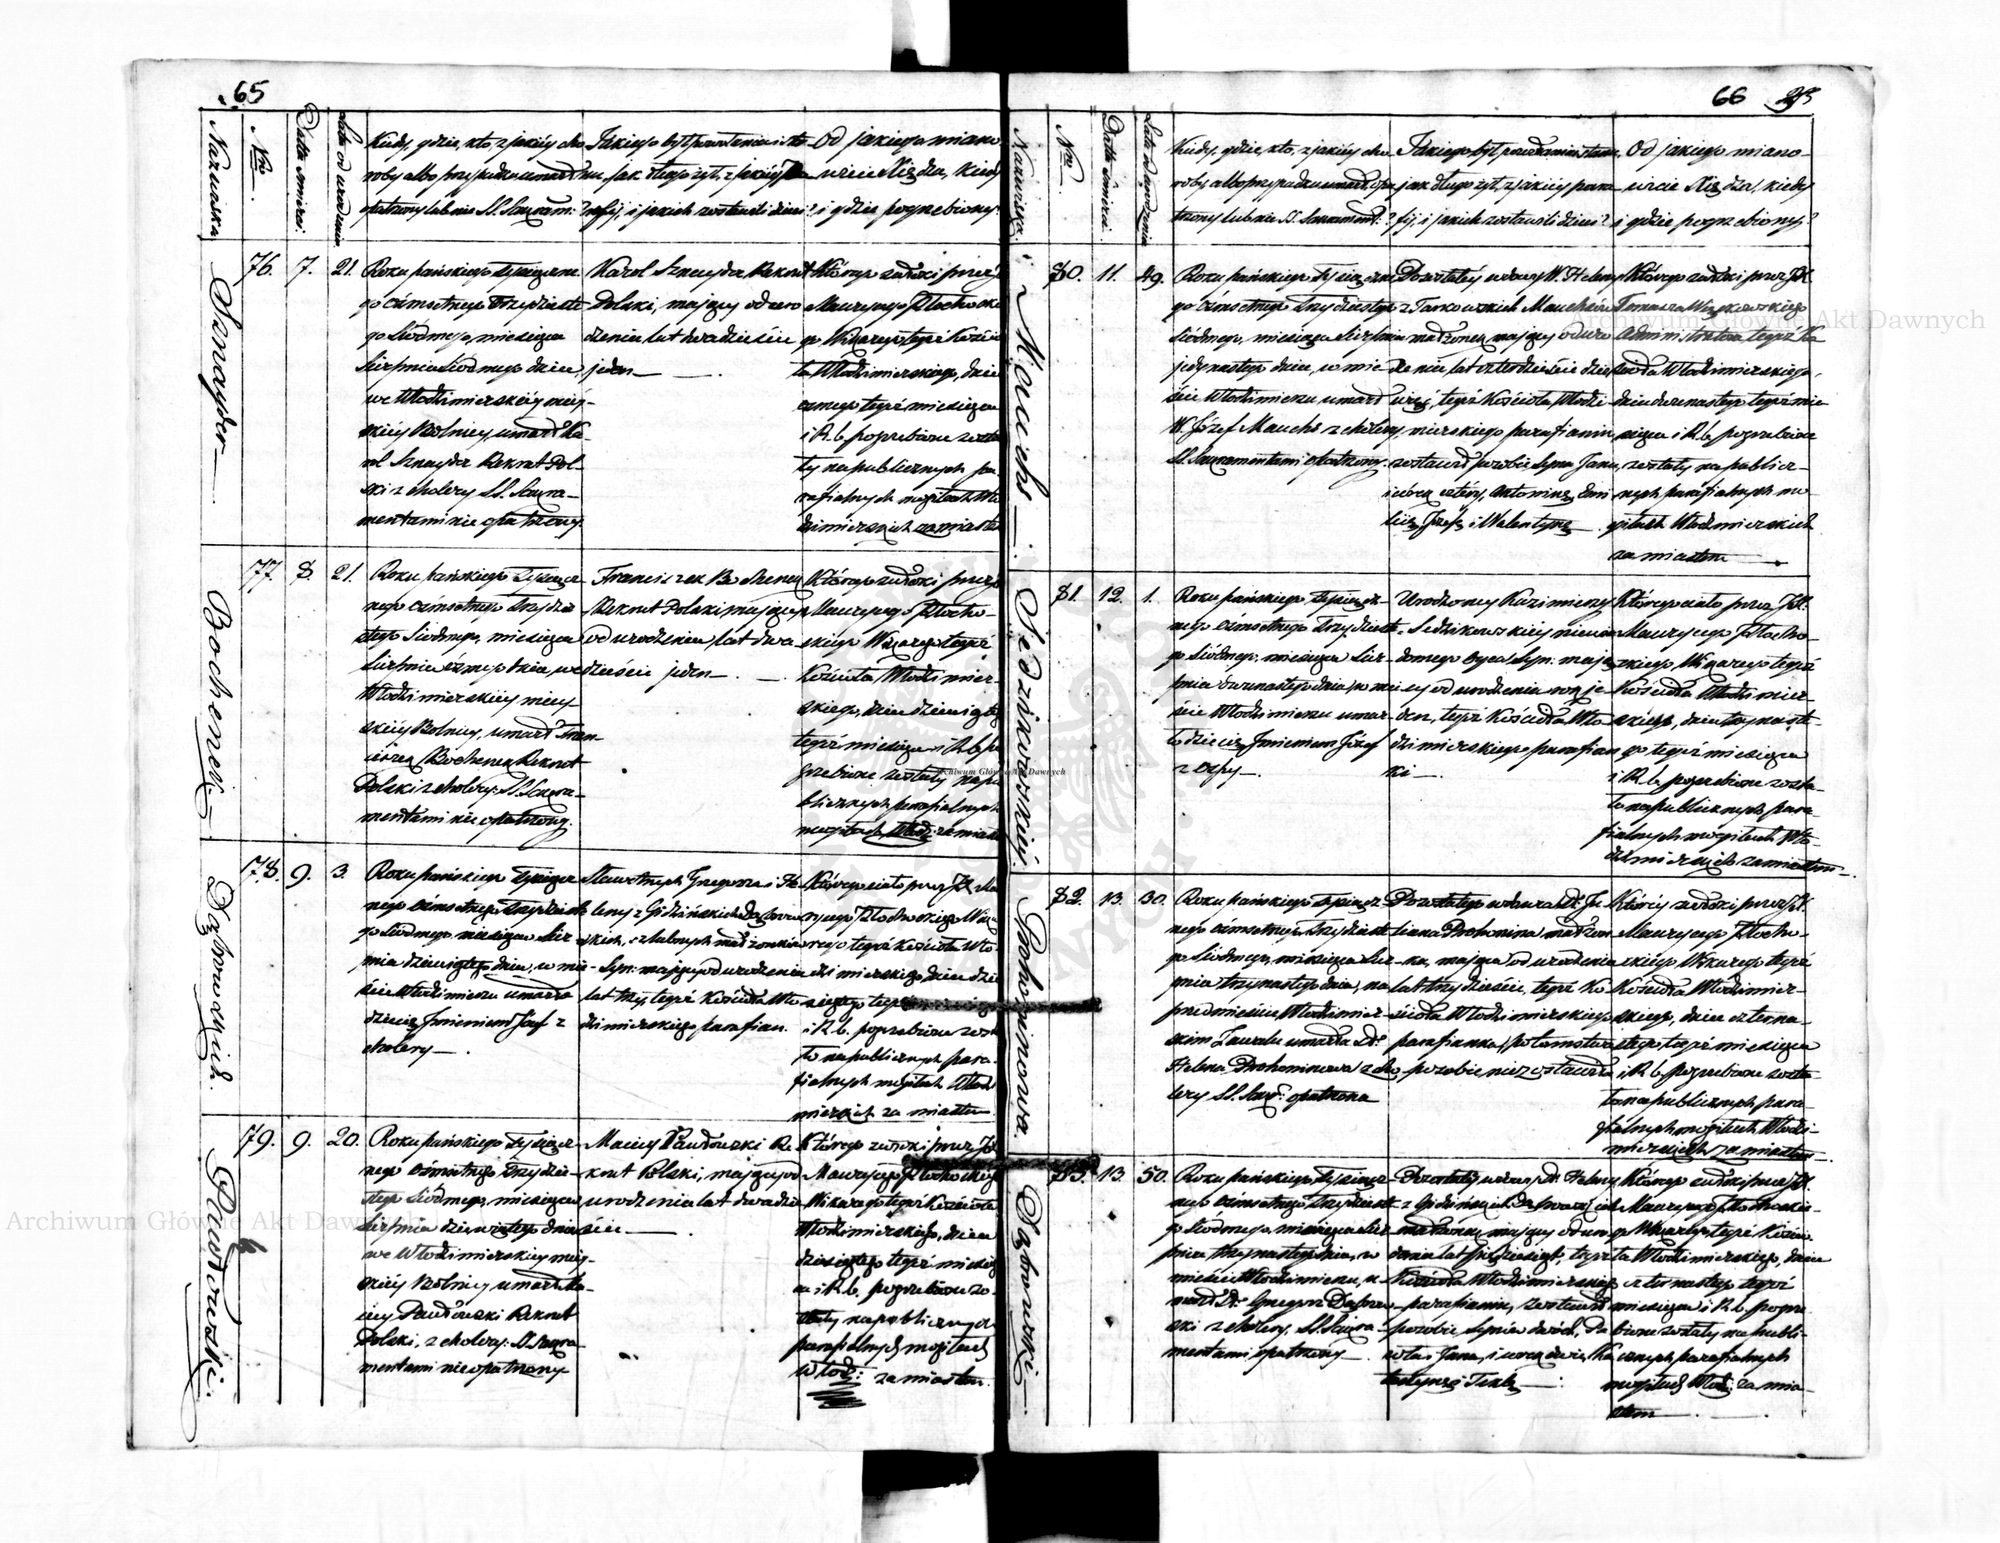 65
Nazwiska
Nro
Datta śmierci
Lata od urodzenia
Kiedy, gdzie, kto, z jakiéy cho
roby albo przypadku umarł
opatrzony lub nie SS. Sakram:?
Jakiego był powołania i sta
nu, jak długo żył, z jakiéy Pa
rafij, i jakich zostawił dzieci?
Od jakiego miano
wicie Xiędza, kiedy
i gdzie pogrzebiony?
Sznayder
76. 7. 21.
Roku pańskiego tysiączne
go ośmsetnego trzydzieste
go siódmego, miesiąca
Sierpnia siódmego dnia,
we Włodzimierskiéy miey-
skiéy Szpitalu umarł Ka-
rol Sznayder Rekrut Pol-
ski z cholery SS. Sakra-
mentami nie opatrzony.
Karol Sznayder Rekrut
Polski, mający od uro
dzenia lat dwadzieście
jeden
Którego zwłoki przez
Maurycego Płochocki
go Wikarego tegoż Kościo
ła Włodzimierskiego, dnia
ósmego tegoż miesiąca
i R. b. pogrzebione zosta
ły na publicznych pa
rafialnych mogiłach Wło
dzimierskich za miastem
Bochenek
77. 8. 21.
Roku pańskiego tysiącz
nego ośmsetnego trzydzie
stego siódmego, miesiąca
Sierpnia ósmego dnia, we
Włodzimierskiéy miey
umarł Fran
ciszek Bochenek Rekrut
Polski z cholery: SS. Sakra-
mentami nie opatrzony.
Franciszek Bochenek
Rekrut Polski, mający
od urodzenia lat dwa
dzieście jeden
Którego zwłoki przez
Maurycego Płocho-
ckiego Wikarego tegoż
Kościoła Włodzimier-
skiego, dnia dziewiątego
tegoż miesiąca i R. b. po
grzebione zostały na pu
blicznych parafialnych
mogiłach Włodz: za miast
Dąbrowskich
78. 9. 3.
Roku pańskiego tysiącz
nego ośmsetnego trzydzieste
go siódmego miesiąca Sier
pnia dziewiątego dnia, w mie-
ście Włodzimierzu umarło
dziecie Jmieniem Józef z
cholery
Sławetnych Grzegorza i He
leny z Gidzińskich Dąbrow
skich, ślubnych małżonków
Syn: mający od urodzenia
lat trzy, tegoż Kościoła Wło
dzimierskiego parafian.
Którego ciało przez X. Mau
rycego Płochockiego Wika
rego tegoż Kościoła Wło
dzimierskiego dnia dzie
siątego tegoż
i R. b. pogrzebione zosta
ło na publicznych para-
fialnych mogiłach Włodzi
mierskich za miastem
Pawłowski
79. 9. 20.
Roku pańskiego tysiącz
nego ośmsetnego trzydzie-
stego siódmego, miesiąca
Sierpnia dziewiątego dnia
we Włodzimierskiéy miey-
umarł Ma-
ciey Pawłowski Rekrut
Polski, z cholery: SS. Sakra
mentami nie opatrzony
Maciey Pawłowski Re
krut Polski, mający od
urodzenia lat dwadzie
ście
Którego zwłoki przez
Maurycego Płochockiego
Wikarego tegoż Kościoła
Włodzimierskiego, dnia
dziesiątego tegoż miesią
ca i R. b. pogrzebione zo-
stały na publicznych
parafialnych mogiłach
Włodz: za miastem.
66
Nazwiska
Nro
Datta śmierci
Lata od urodzenia
Kiedy, gdzie, kto, z jakiéy cho
roby albo przypadku umarł, opa
trzony lub nie SS. Sakrament:?
Jakiego był powołania i stanu,
jak długo żył, z jakiéy para
fij, i jakich zostawił dzieci?
Od jakiego miano-
wicie Xiędza, kiedy
i gdzie pogrzebiony?
Mauchs
80. 11. 49.
Roku pańskiego tysiączne
go ośmsetnego trzydziestego
siódmego, miesiąca Sierpnia
jedynastego dnia, w mie-
ście Włodzimierzu umarł
W. Józef Mauchs z cholery,
SS. Sakramentami opatrzony.
Pozostałéy wdowy W. Heleny
z Tarkowskich Mauchsów
małżonek, mający od uro
dzenia lat czterdzieście dzie
więć, tegoż Kościoła Włodzi-
mierskiego parafianin
zostawił po sobie Syna Jana,
i córek cztéry, Antoninę, Emi
lię, Józefę i Walentynę
Którego zwłoki przez X.
Tomasza
Administratora tegoż Ko
ścioła Włodzimierskiego,
dnia dwunastego tegoż mie
siąca i R. b. pogrzebione
zostały na publicz-
nych parafialnych mo-
giłach Włodzimierskich
za miastem
Sedzikowskiéy
81. 12. 1.
Roku pańskiego tysiącz-
nego ośmsetnego trzydzieste
go siódmego, miesiąca Sier-
pnia dwunastego dnia, w mie
ście Włodzimierzu umar-
ło dziecie Jmieniem Józef
z ospy
Urodzoney Kazimiery
Sedzikowskiéy niewia
domego Oyca Syn: mają
cy od urodzenia rok je-
den, tegoż Kościoła Wło-
dzimierskiego parafian
ki
Którego ciało przez X.
Maurycego Płocho-
ckiego Wikarego tegoż
Kościoła Włodzimier
skiego, dnia trzynaste-
go tegoż miesiąca
i R. b. pogrzebione zosta-
ło na publicznych para-
fialnych mogiłach Wło-
dzimierskich za miastem
Prohominowa
82. 13. 30.
Roku pańskiego tysiącz
nego ośmsetnego trzydzieste
go siódmego, miesiąca Sier-
pnia trzynastego dnia, na
przedmieściu Włodzimier-
skim Zawalu umarła Sł:
Helena Prohominowa z cho
lery SS. Sakr: opatrzona
Pozostałego wdowca Sł. Ju
liana Prohomina małżon
ka, mająca od urodzenia
lat trzydzieście, tegoż Ko
ścioła Włodzimierskiego
parafianka, potomstwa
po sobie nie zostawiła
Któréy zwłoki przez X.
Maurycego Płocho-
ckiego Wikarego tegoż
Kościoła Włodzimier-
skiego, dnia czterna-
stego tegoż miesiąca
i R. b. pogrzebione zosta-
ły na publicznych para-
fialnych mogiłach Włodzi-
mierskich za miastem
Dąbrowski
83. 13. 50.
Roku pańskiego tysiącz
nego ośmsetnego trzydzieste
go siódmego, miesiąca Sier
pnia trzynastego dnia, w
mieście Włodzimierzu, u-
marł Sł: Grzegorz Dąbrow-
ski z cholery, SS. Sakra-
mentami opatrzony
Pozostałéy wdowy Sł. Heleny
z Gidzińskich Dąbrowskich
małżonek, mający od uro
dzenia lat pięćdziesiąt, tegoż
Kościoła Włodzimierskiego
parafianin, zostawił
po sobie Synów dwóch,
i Jana, i córek dwie, Ka
tarzynę i Teklę
Którego zwłoki przez X.
Maurycego Płochockie-
go Wikarego tegoż Kościo
ła Włodzimierskiego, dnia
czternastego tegoż
miesiąca i R. b. pogrze
bione zostały na publi-
cznych parafialnych
mogiłach Włodz: za mia-
stem
Archiwum Główne Akt Dawnych
Archiwum Główne Akt Dawnych
Archiwum Główne Akt Dawnych